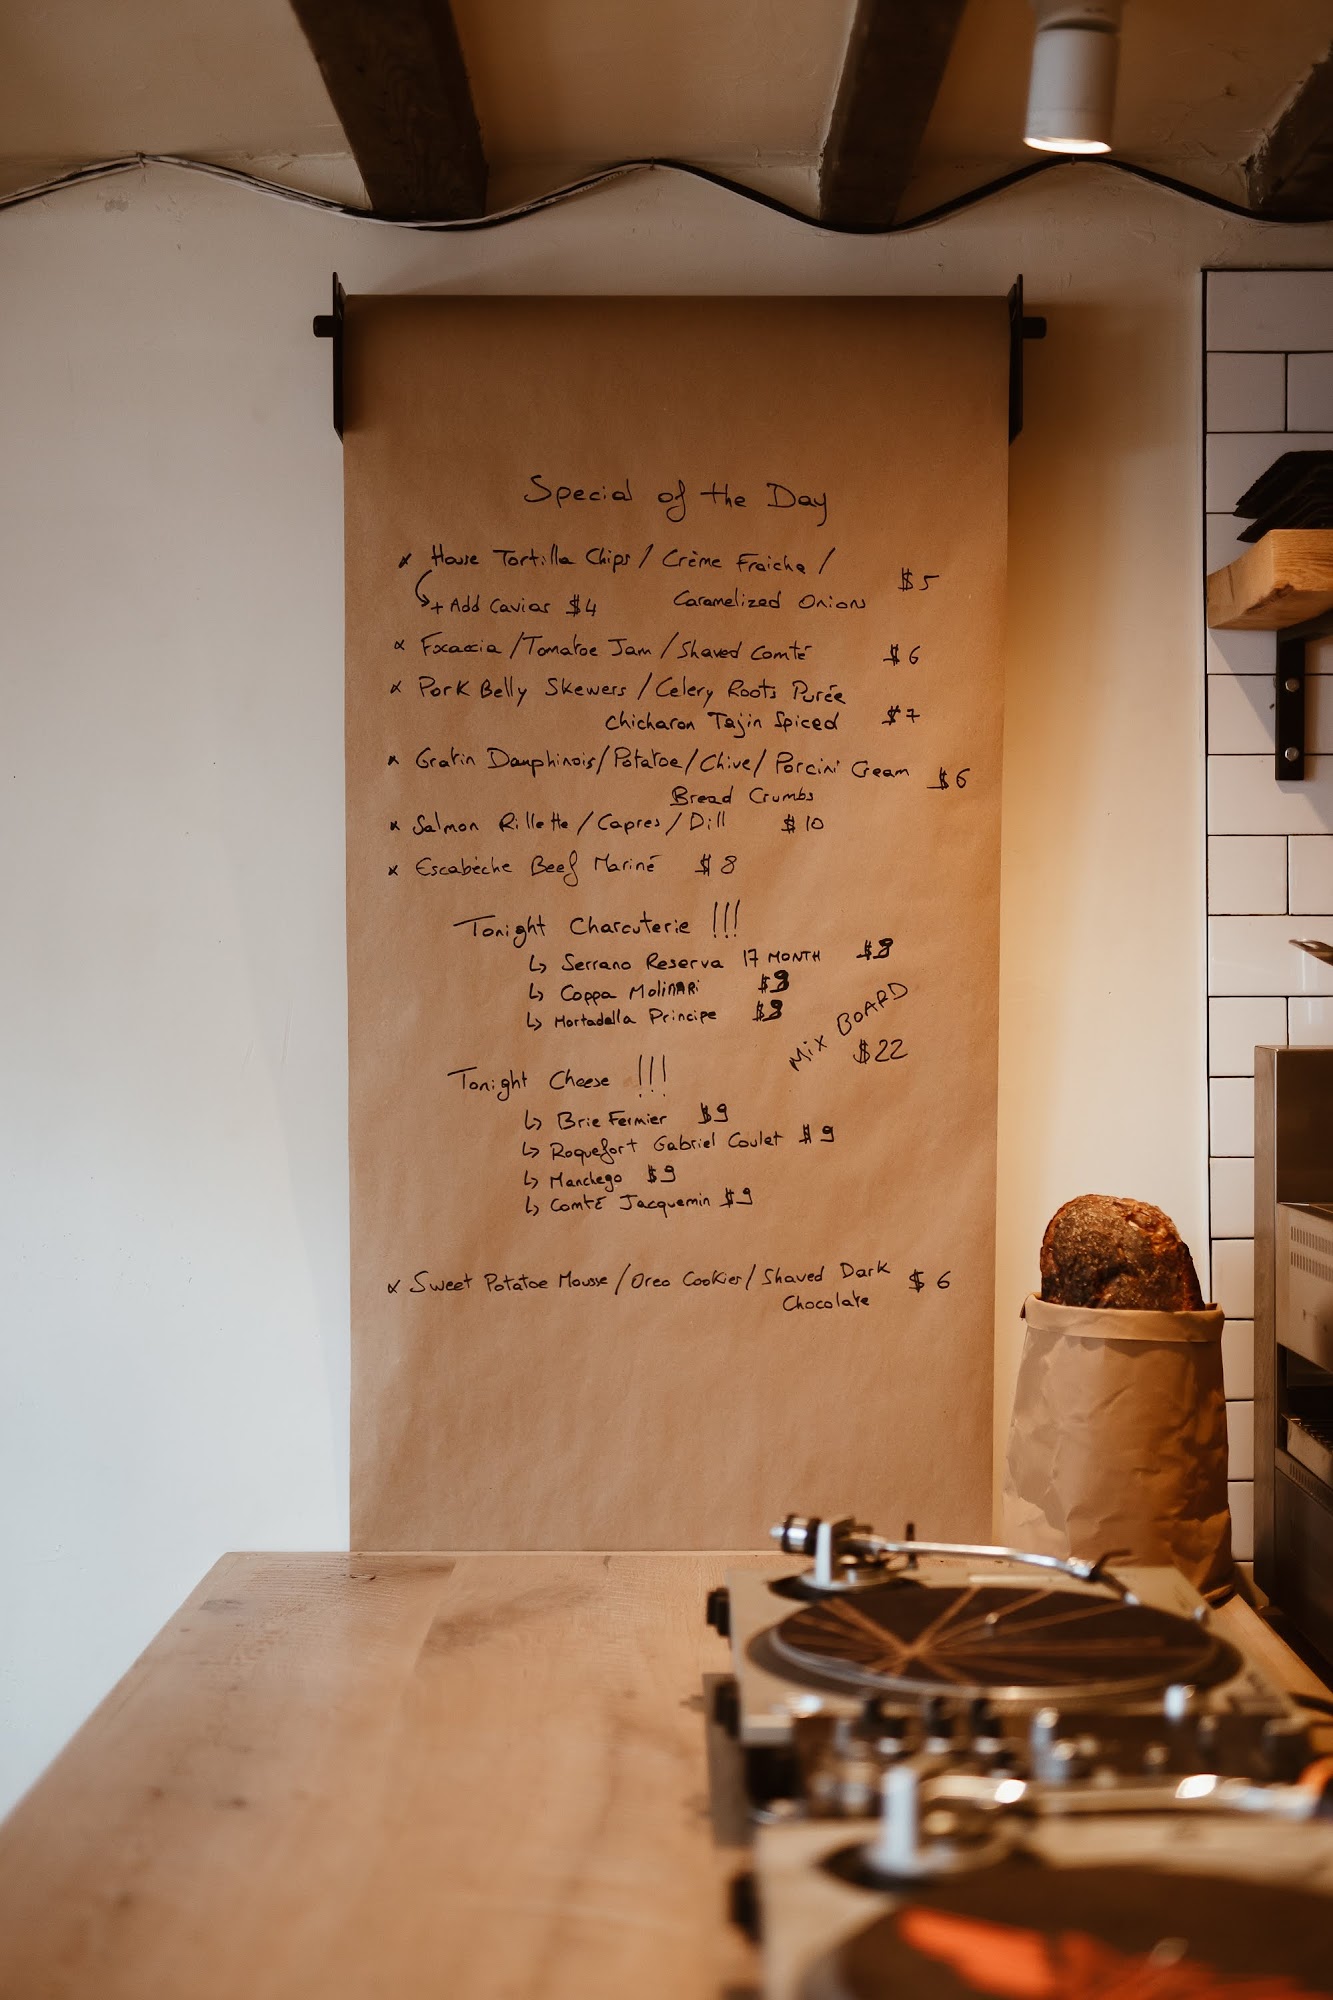 Special of the Day
x House Tortilla Chips / Crème Fraiche /
$5
+ Add Caviar $4 Caramelized Onions
x Focaccia / Tomatoe Jam / Shaved Comté $6
x Pork Belly Skewers / Celery Roots Purée
Chicharon Tajin Spiced $7
x Gratin Dauphinois / Potatoe / Chive / Porcini Cream $6
Bread Crumbs
x Salmon Rillette / Capres / Dill $10
x Escabèche Beef Mariné $8
Tonight Charcuterie !!!
↳ Serrano Reserva 17 MONTH
↳ Coppa Molinari
↳ Mortadella Principe
Mix BOARD
$22
Tonight Cheese !!!
↳ Brie Fermier $9
↳ Roquefort Gabriel Coulet $9
↳ Manchego $9
↳ Comté Jacquemin $9
x Sweet Potatoe Mousse / Oreo Cookies / Shaved Dark $6
Chocolate